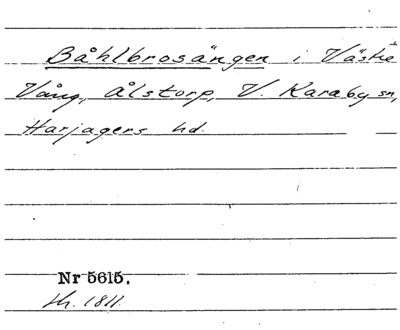 Båhlbrosängen i Västre
Vång, Ålstorp, V. Karaby sn,
Harjagers hd.
Nr 5615.
1811.